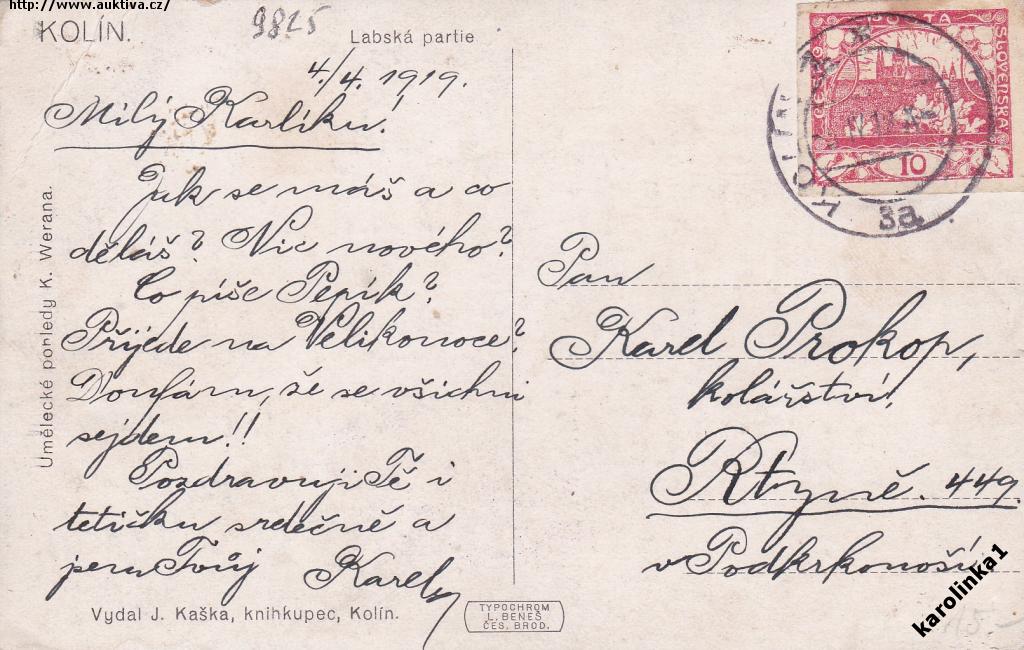 http://www.auktiva.cz/
KOLÍN.
9825
Labská partie
4./4. 1919.
Milý Karlíku!
Jak se máš a co
děláš? Nic nového?
Co píše Pepík?
Přijede na Velikonoce?
Doufám, že se všichni
sejdem!!
Pozdravuji Tě i
tetičku srdečně a
jsem Tvůj Karel
Umělecké pohledy K. Werana.
Vydal J. Kaška, knihkupec, Kolín.
TYPOCHROM
L. BENEŠ
ČES. BROD.
POŠTA
ČESKO
SLOVENSKÁ
10
KOLÍN
3a
Pan
Karel Prokop,
kolářství,
Rtyně. 449.
v Podkrkonoší
karolinka1